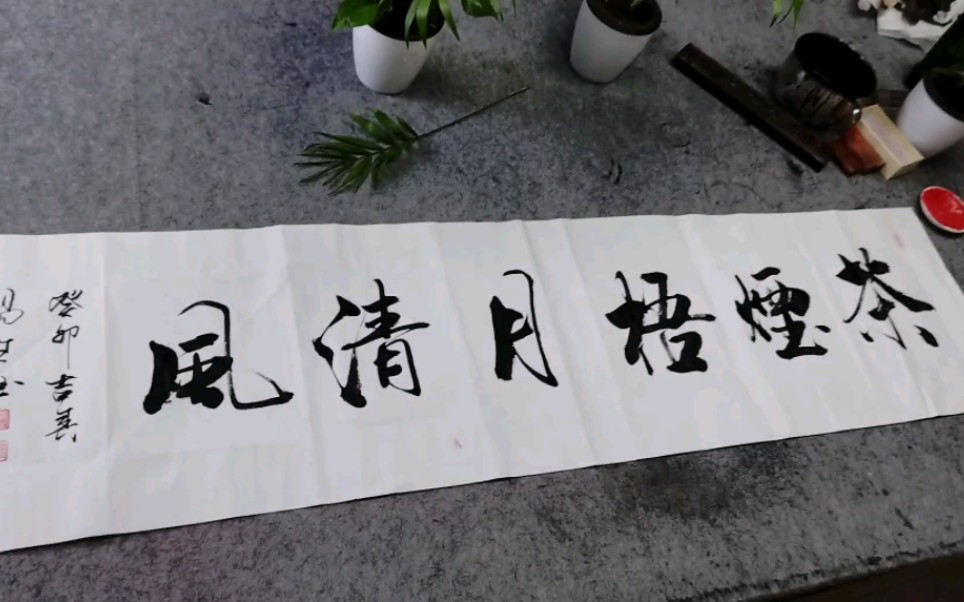 茶煙梧月清風
癸卯吉春